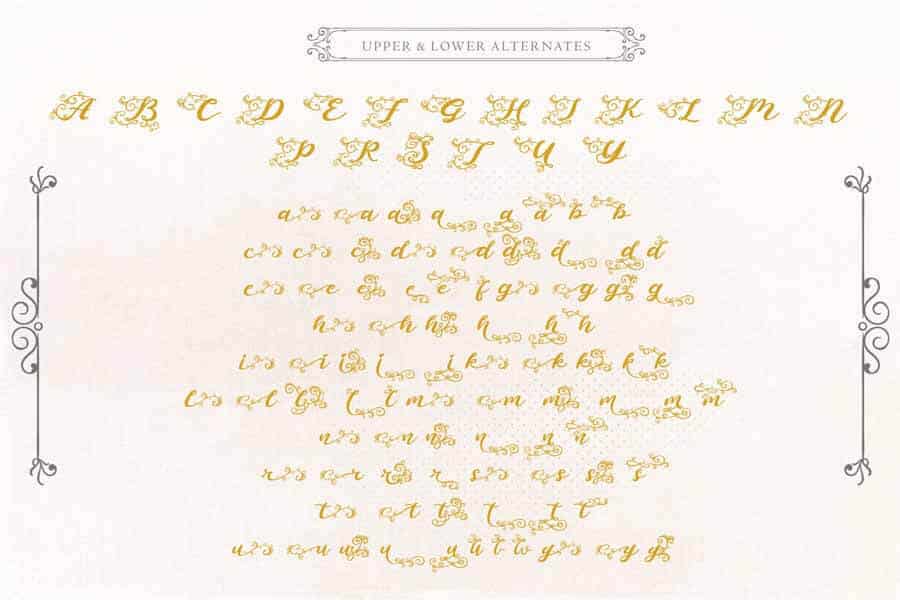 UPPER & LOWER ALTERNATES
A B C D E F G H I K L M N
P R S T U Y
a a a a a a b b
c c c d d d d d d
e e e e e f g g g g
h h h h h h
i i i i i k k k k k
l l l l l m m m m m m
n n n n n n
r r r r s s s s
t t t t t t
u u u u u u t tv y y y